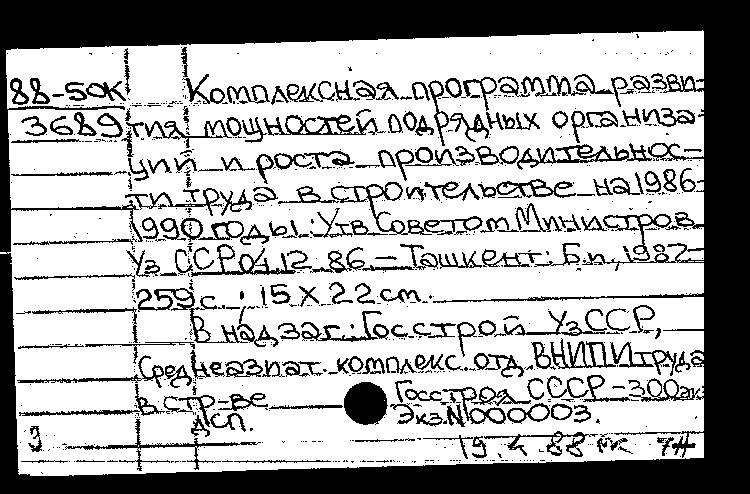 88-50К Комплексная программа разви-
3689 тия мощностей подрядных организа-
ций и роста производительнос-
ти труда в строительстве на 1986-
1990 годы: Утв Советом Министров
Уз ССР 04.12.86. — Ташкент: Б.и., 1987-
259 с.; 15 X 22 cm.
В надзаг.: Госстрой УзССР,
Среднеазиат. комплекс. отд. ВНИПИ труда
в стр-ве Госстроя СССР - 300 экз
ДСП. Экз.N 000003.
19.4.88